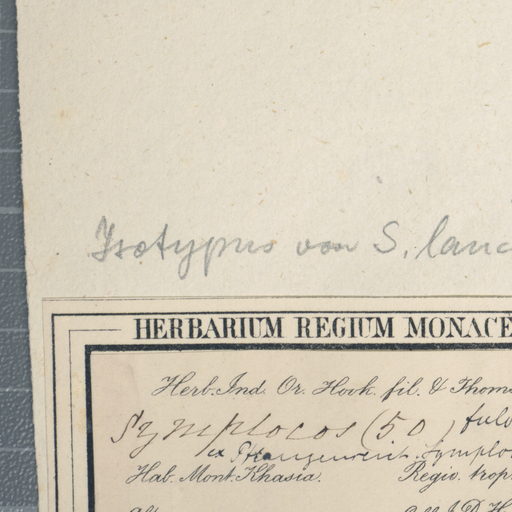 Isotypus von S. lanc
HERBARIUM REGIUM MONACE
Herb. Ind. Or. Hook. fil. & Thoms
Symplocos (50) fulv
Symplo
Hab. Mont. Khasia. Regio. trop